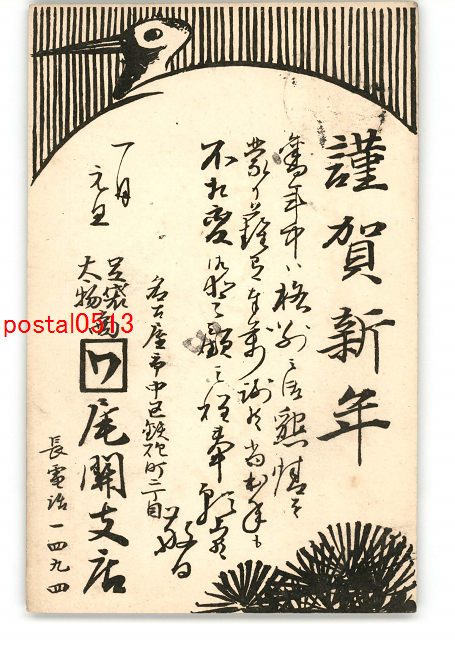 謹賀新年
舊年中ハ格別之御懇情を
蒙り難有奉萬謝候尚本年も
不相変御愛顧之程奉願上候
敬白
一月
元旦
名古屋市中区鉄砲町二丁目
足袋
太物商
ワ 尾関支店
長電話一四九四
postal0513